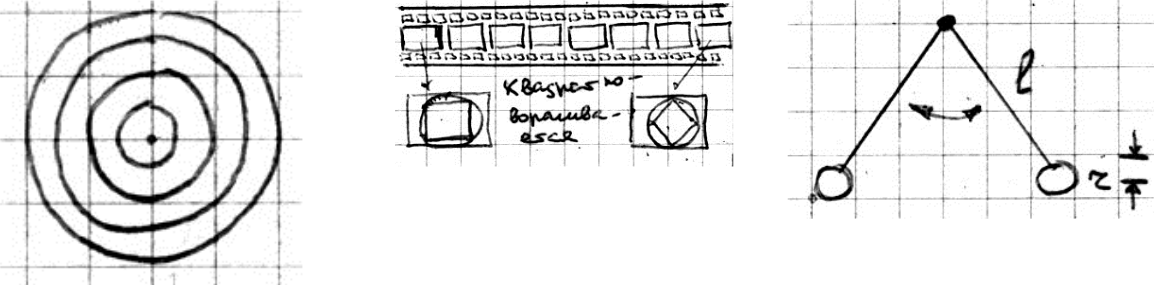 квадрат по-
ворачива-
ется
l
r